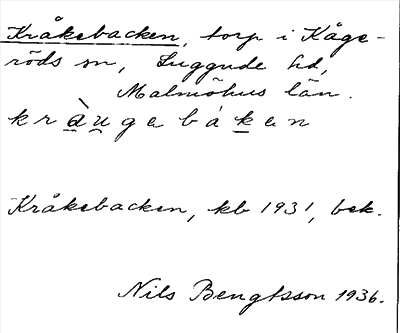 Kråkebacken, torp i Kåge-
röds sn, Luggude hd,
Malmöhus län.
kràu̯gabáken
Kråkebacken, kb 1931, bek.
Nils Bengtsson 1936.